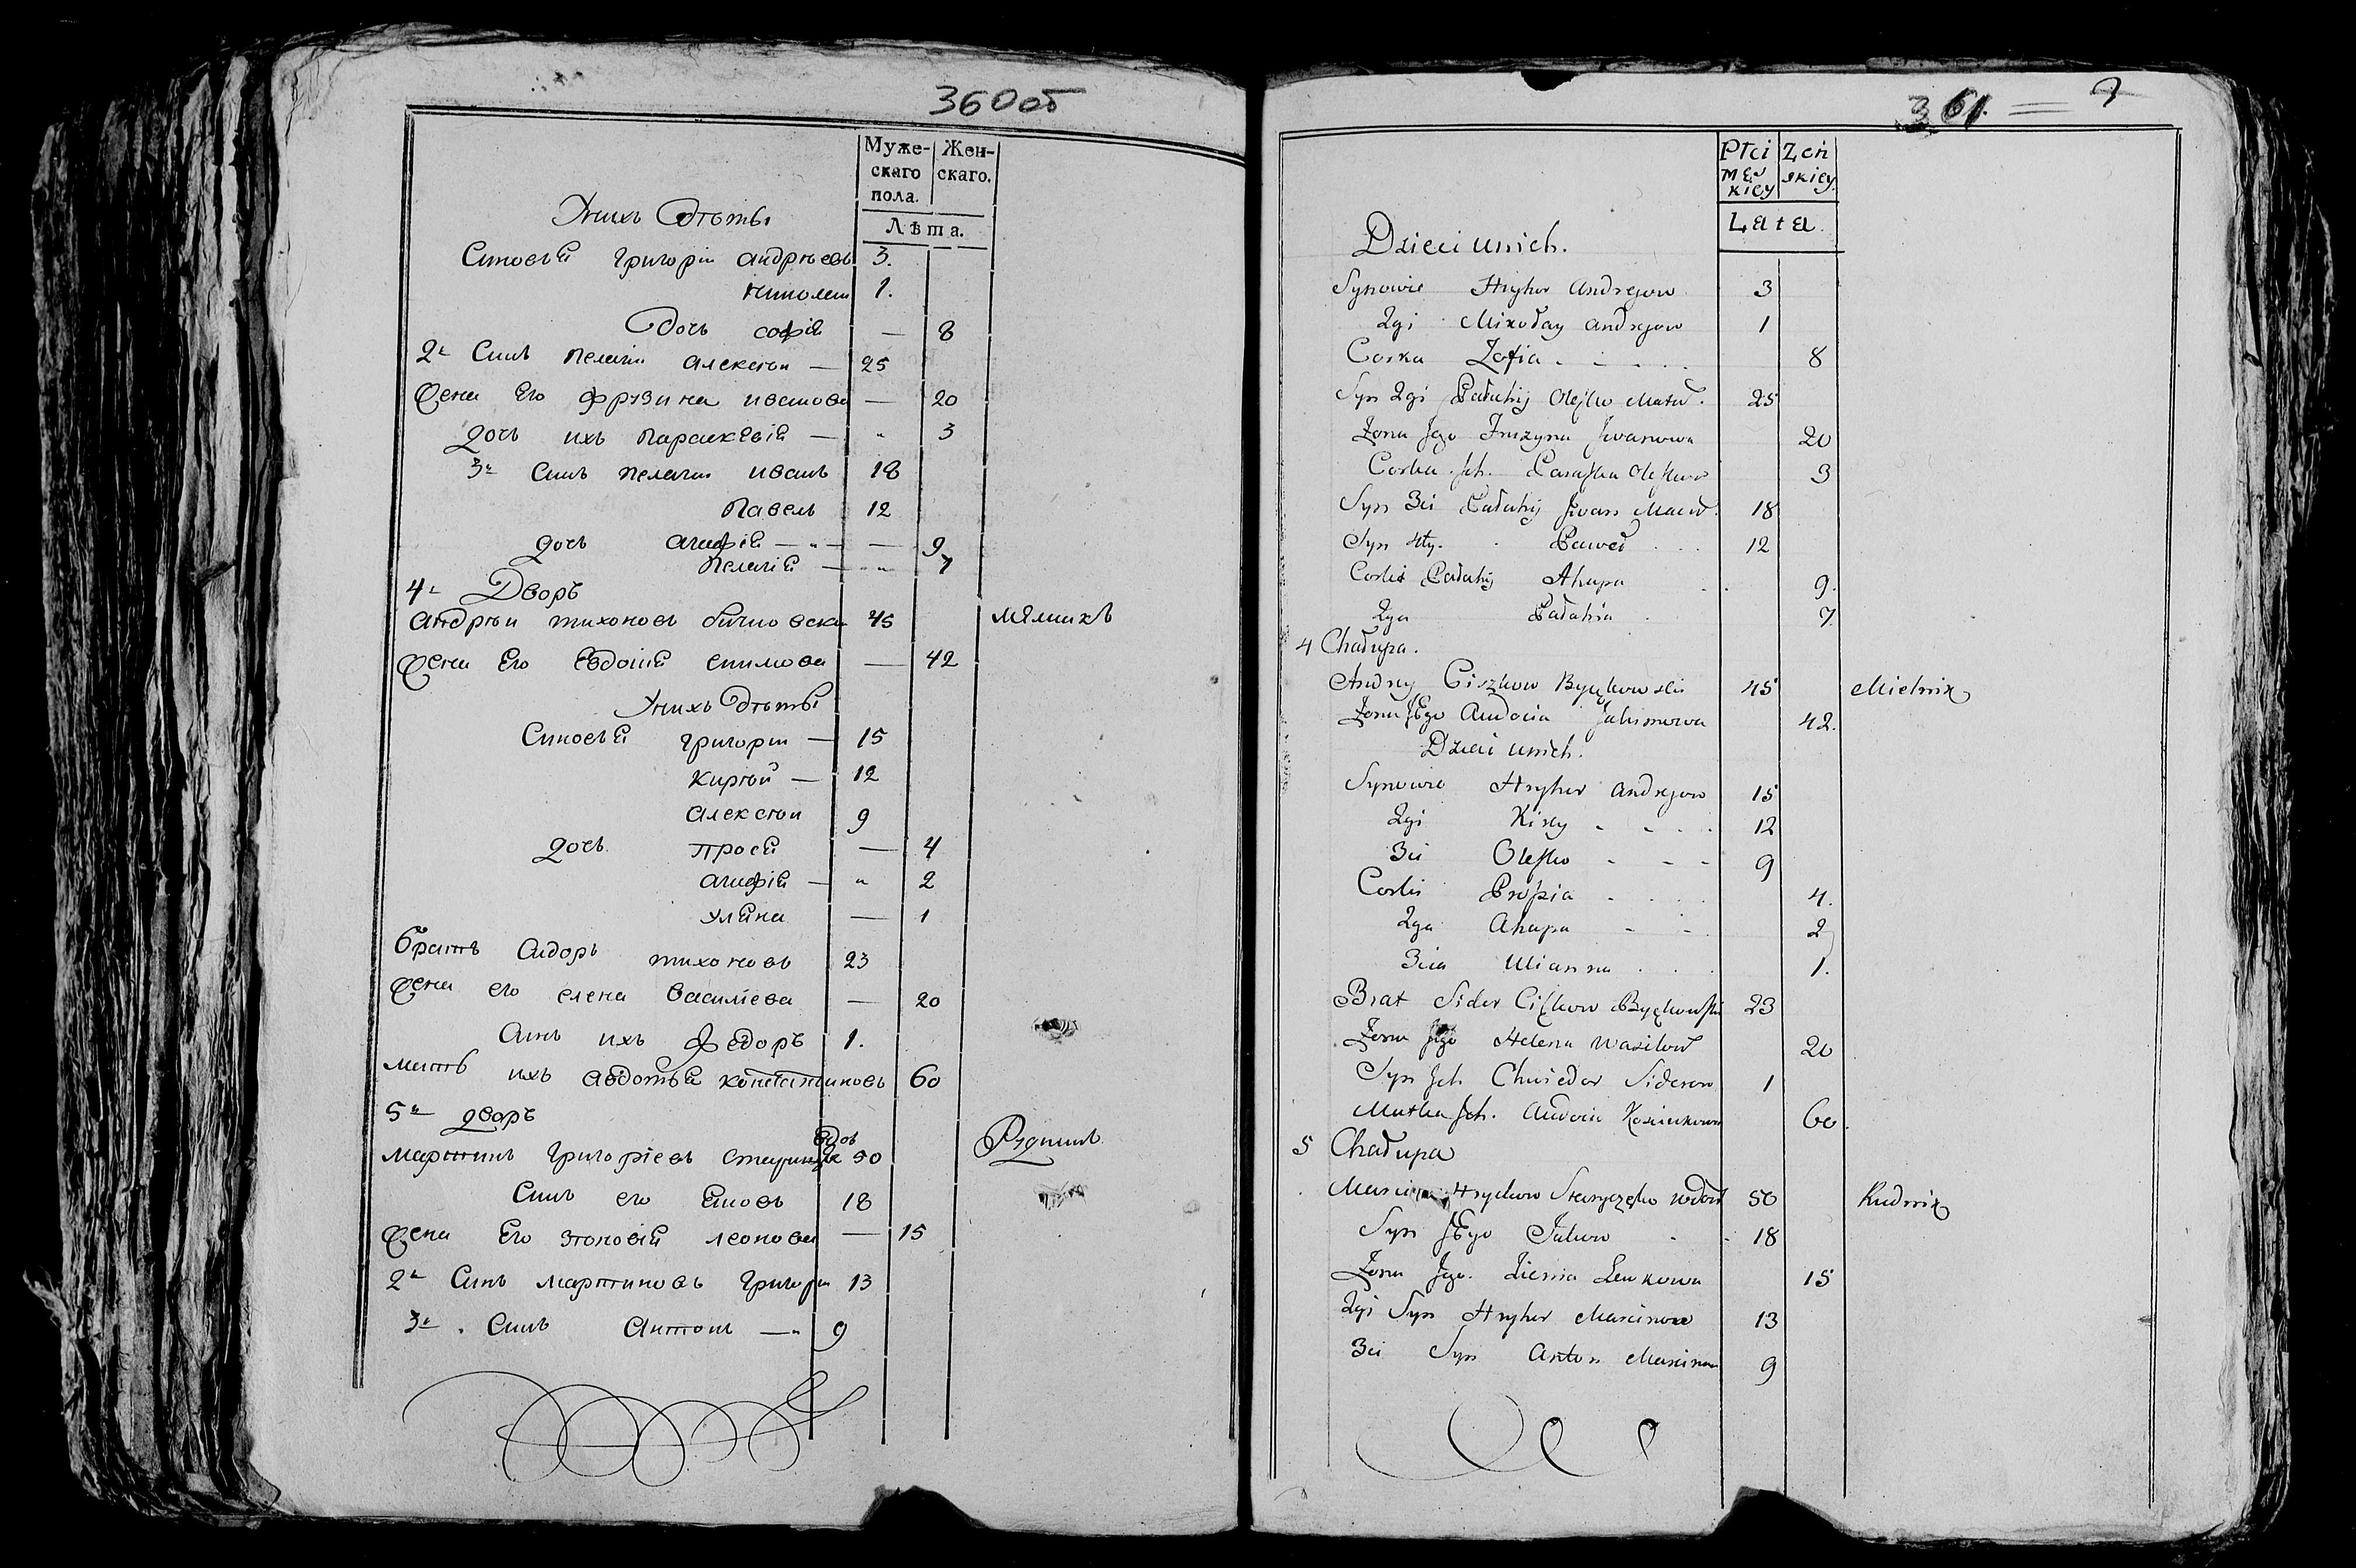 360 об
Муже-
скаго
пола.
Жен-
скаго.
Лѣта.
У нихъ дѣты
Сыновья григорiи андрѣевъ 3.
николаи 1.
Дочь софiя — 8
2й Сынъ пелагiи алексѣи — 25
Жена Его фрузина иванова — 20
дочь ихъ параскевiя — „ 3
3й Сынъ пелагiи иванъ 18
Павелъ 12
дочь агафiя — „ — — 9
пелагiя — „ 7
4й Дворъ
андрѣи тихоновъ бычковски 45 мѣлникъ
Жена Его Евдокiя екимова — 42
У нихъ дѣты
Сыновья григорiи — 15
кирѣй — 12
алексѣи 9
дочь прося — 4
агафiя — „ 2
уляна — 1
братъ Сидоръ тихоновъ 23
Жена его елена василiева — 20
Сынъ ихъ федоръ 1.
мать ихъ авдотья константиновъ 60
5й дворъ
мартинъ григорiевъ вдов 50 Рудникъ
Сынъ его яковъ 18
Жена Его зѣновiя леонова — 15
2й Сынъ мартиновъ григори 13
3й Сынъ Антонъ — „ 9
361. = 7
Płci
męs
kiey
Żeń
skiey
Lata.
Dzieci u nich.
Synowie Hryhor Andrejow 3
2gi Mikołay Andrejow 1
Corka Zofia - - - . . 8
Syn 2gi Pałahij Olejko Matw. 25
Żona Jego Fruzyna Iwanowa 20
Corka Ich. Paraska Olejkow 3
Syn 3ci Pałahij Iwan Macw. 18
Syn 4ty. Paweł . . . 12
Corki Pałahij Ahapa . . 9.
2ga Pałahia . 7.
4 Chałupa.
Andrey Ciszkow Byczkowski 45 Mielnik
Żona Jego Audocia Jakimowa 42.
Dzieci u nich.
Synowie Hryhor Andrejow 15
2gi Kirey - - . . 12
3ci Olejko - - - 9
Corki Prosia . . . . 4.
2ga Ahapa - - 2
3cia Ulianna . . . 1.
Brat Sidor Ciszkow Byczkowski 23
Żona Jego Helena Wasilow 20
Syn Ich Chwiedor Sidorow 1
Matka Ich. Audocia 60.
5 Chałupa
Marcin Hryckow wdow 50 Rudnik
Syn Jego Jakow - - 18
Żona Jego. Zienia Lewkowa 15
2gi Syn Hryhor Marcinow 13
3ci Syn Anton Marcinow 9